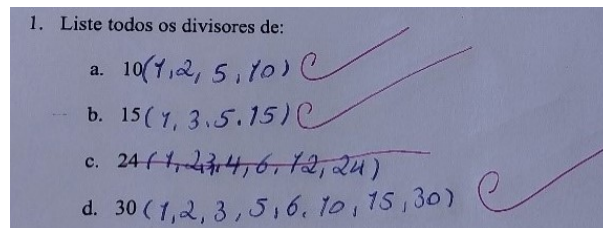 1. Liste todos os divisores de:
a. 10(1,2, 5, 10) C
b. 15(1, 3.5.15) C
c. 24(1,2,3,4,6,12,24)
d. 30(1,2,3,5,6,10,15,30) C